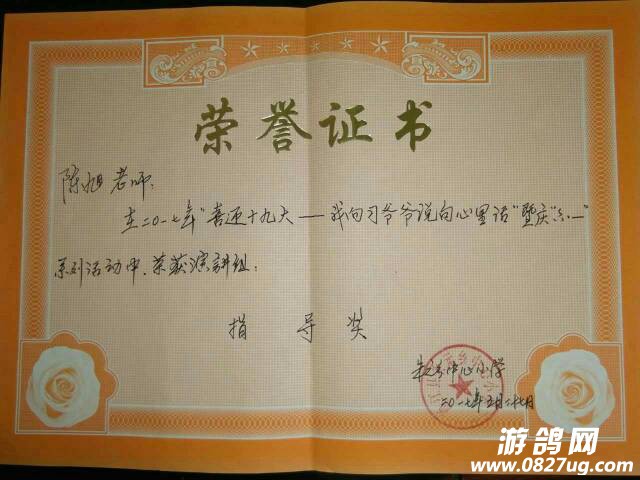 荣誉证书
陈旭老师:
在二〇一七年"喜迎十九大——我向习爷爷说句心里话"暨庆"六一"
系列活动中,荣获演讲组:
指导奖
中心小学
二〇一七年五月二十七日
游鸽网
www.0827ug.com